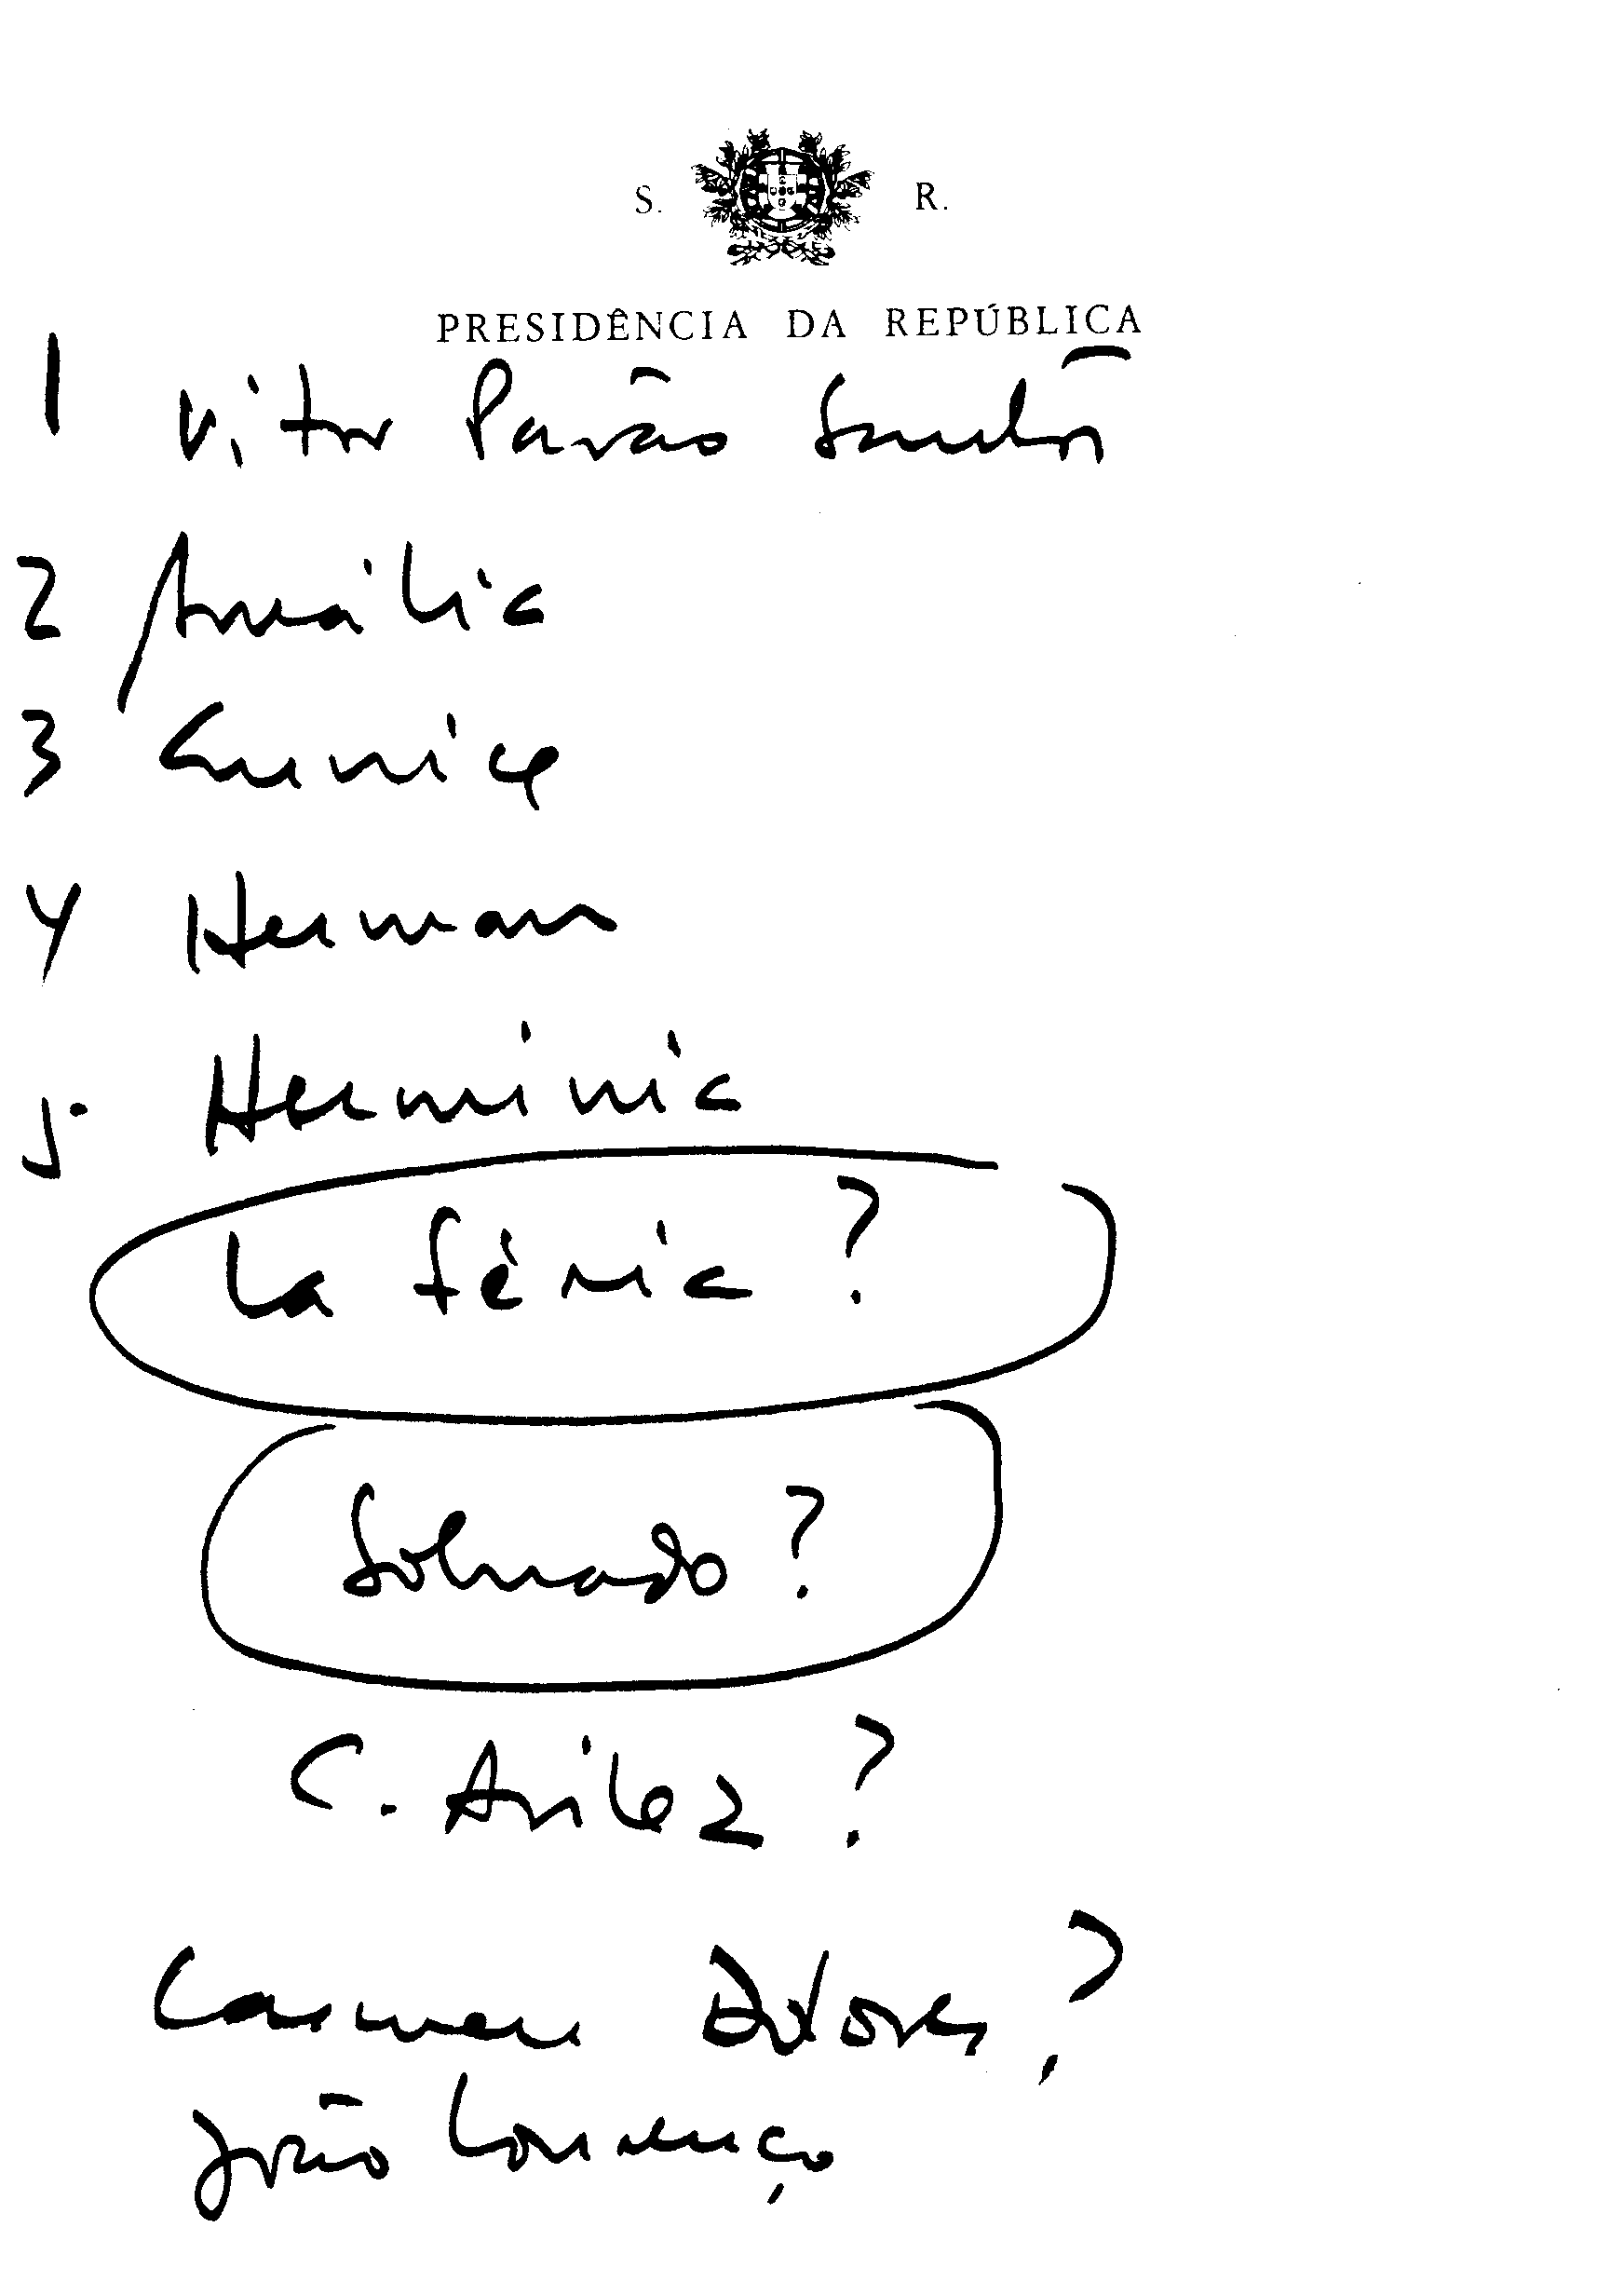 S. R.
PRESIDÊNCIA DA REPÚBLICA
1 Vitor Pavão Santos
2 Amália
3 Eunice
4 Herman
5. Herminia
La Féria?
Solnado?
C. Avilez?
Carmen Dolores?
João Lourenço